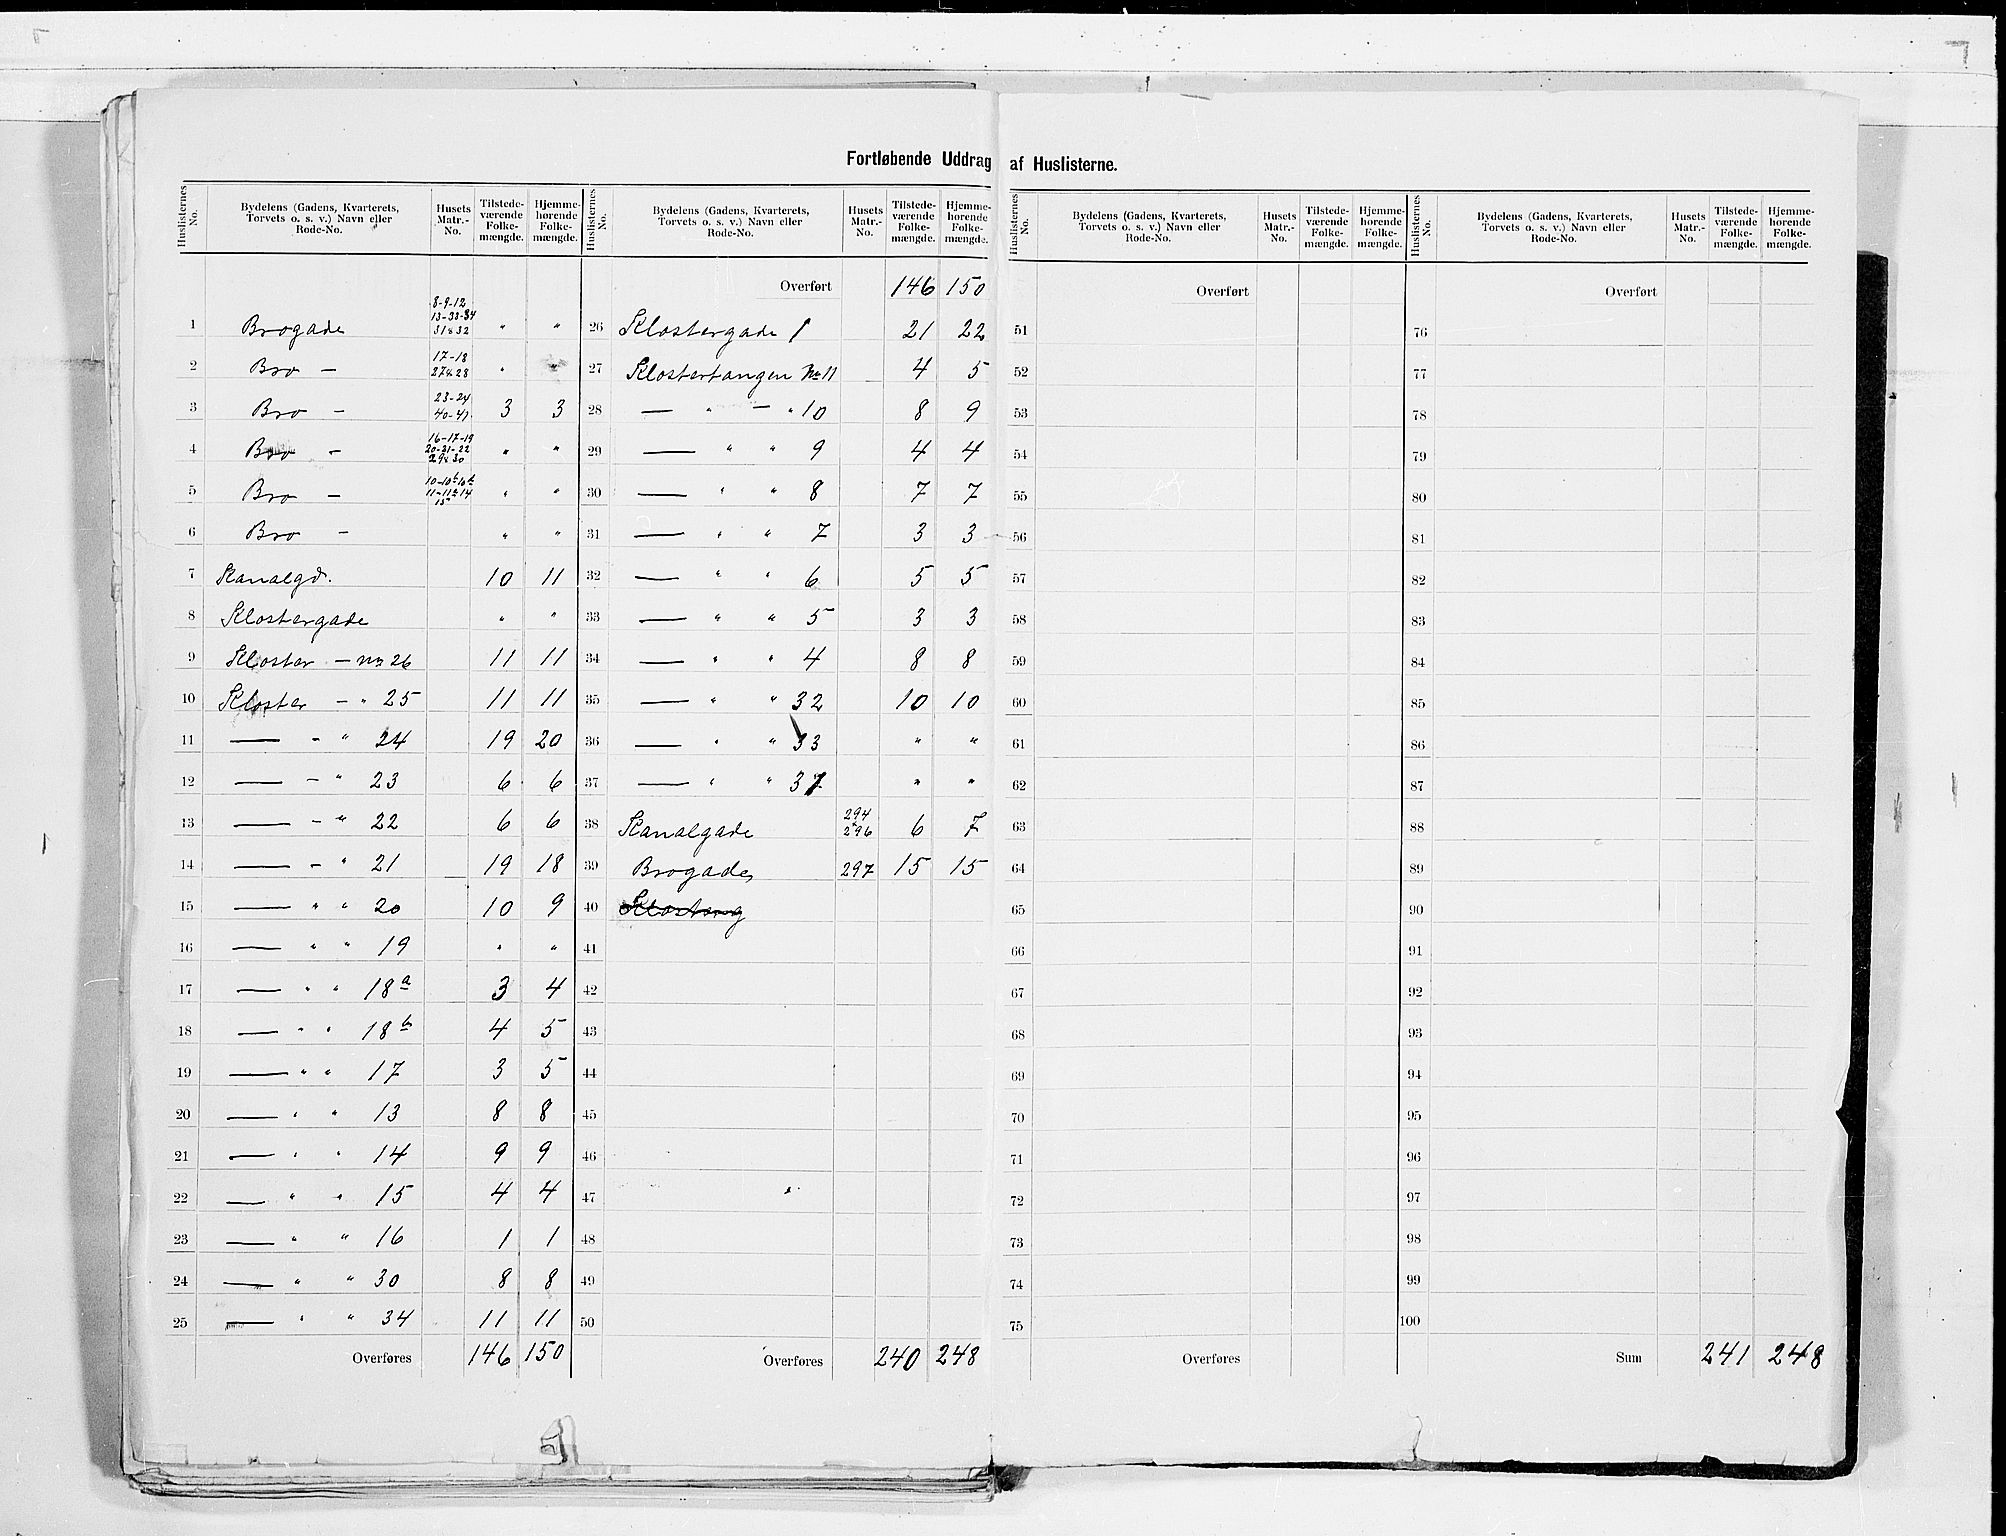 Fortløbende Uddrag af Huslisterne.
Huslisternes No. | Bydelens (Gadens, Kvarterets, Torvets o. s. v.) Navn eller Rode-No. | Husets Matr.-No. | Tilstede-værende Folke-mængde. | Hjemme-hørende Folke-mængde.
1 Brogade 8-9-12 13-33-34 31&32 " "
2 Bro — 17-18 27&28 " "
3 Bro — 23-24 40-41 3 3
4 Bro — 16-17-19 20-21-22 29&30 " "
5 Bro — " "
6 Bro — " "
7 Kanalgd. 10 11
8 Klostergade " "
9 Kloster — No 26 11 11
10 Kloster — " 25 11 11
11 — - " 24 19 20
12 — - " 23 6 6
13 — - " 22 6 6
14 — - " 21 19 18
15 — " " 20 10 9
16 — " " 19 " "
17 — " " 18a 3 4
18 — " " 18b 4 5
19 — " " 17 3 5
20 — " " 13 8 8
21 — " " 14 9 9
22 — " " 15 4 4
23 — " " 16 1 1
24 — " " 30 8 8
25 — " " 34 11 11
Overføres 146 150
Huslisternes No. | Bydelens (Gadens, Kvarterets, Torvets o. s. v.) Navn eller Rode-No. | Husets Matr.-No. | Tilstede-værende Folke-mængde. | Hjemme-hørende Folke-mængde.
Overført 146 150
26 Klostergade 1 21 22
27 Klostertangen No 11 4 5
28 — " — " 10 8 9
29 — " " 9 4 4
30 — " " 8 7 7
31 — " " 7 3 3
32 — " " 6 5 5
33 — " " 5 3 3
34 — " " 4 8 8
35 — " " 32 10 10
36 — " " 33 " "
37 — " " 37 " "
38 Kanalgade 294 & 296 6 7
39 Brogade, 297 15 15
40 Klosterg
41
42
43
44
45
46
47
48
49
50
Overføres 240 248
Huslisternes No. | Bydelens (Gadens, Kvarterets, Torvets o. s. v.) Navn eller Rode-No. | Husets Matr.-No. | Tilstede-værende Folke-mængde. | Hjemme-hørende Folke-mængde.
Overført
51
52
53
54
55
56
57
58
59
60
61
62
63
64
65
66
67
68
69
70
71
72
73
74
75
Overføres
Huslisternes No. | Bydelens (Gadens, Kvarterets, Torvets o. s. v.) Navn eller Rode-No. | Husets Matr.-No. | Tilstede-værende Folke-mængde. | Hjemme-hørende Folke-mængde.
Overført
76
77
78
79
80
81
82
83
84
85
86
87
88
89
90
91
92
93
94
95
96
97
98
99
100
Sum 241 248